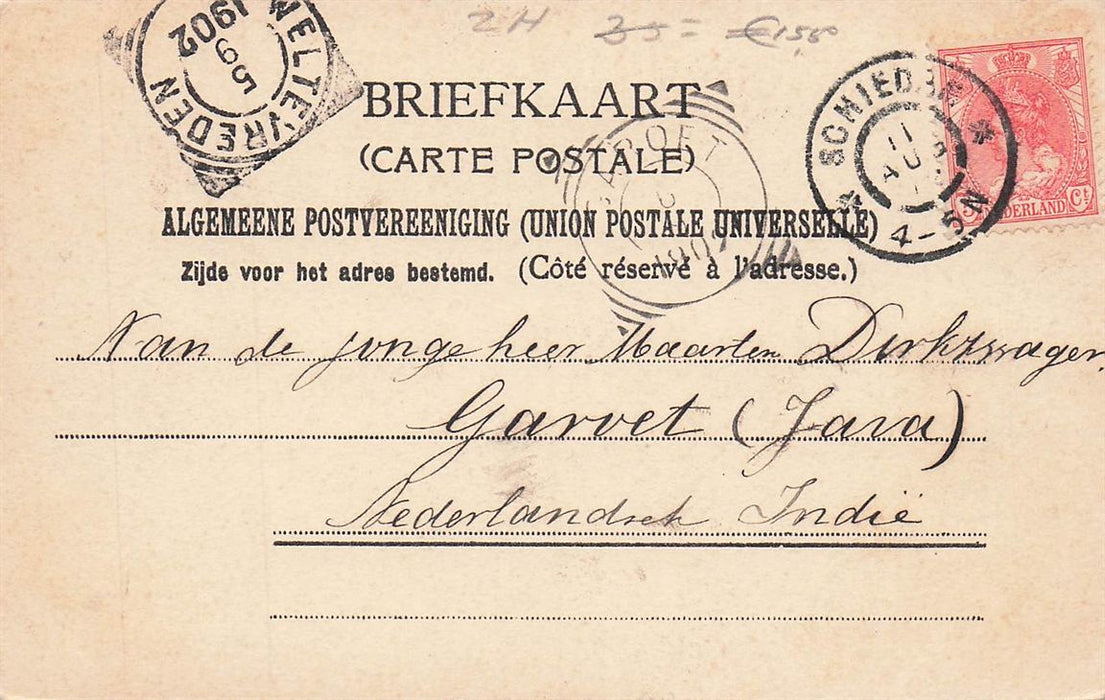 2H 35= €15,50
WELTEVREDEN
5 9
1902
SCHIEDAM
11 AUG
4-5N
5 NEDERLAND Ct
BRIEFKAART
(CARTE POSTALE)
GAROET
1902
ALGEMEENE POSTVEREENIGING (UNION POSTALE UNIVERSELLE)
Zijde voor het adres bestemd. (Côté réservé à l'adresse.)
Aan de jongeheer Maarten Dirkzwager,
Garoet (Java)
Nederlandsch Indië